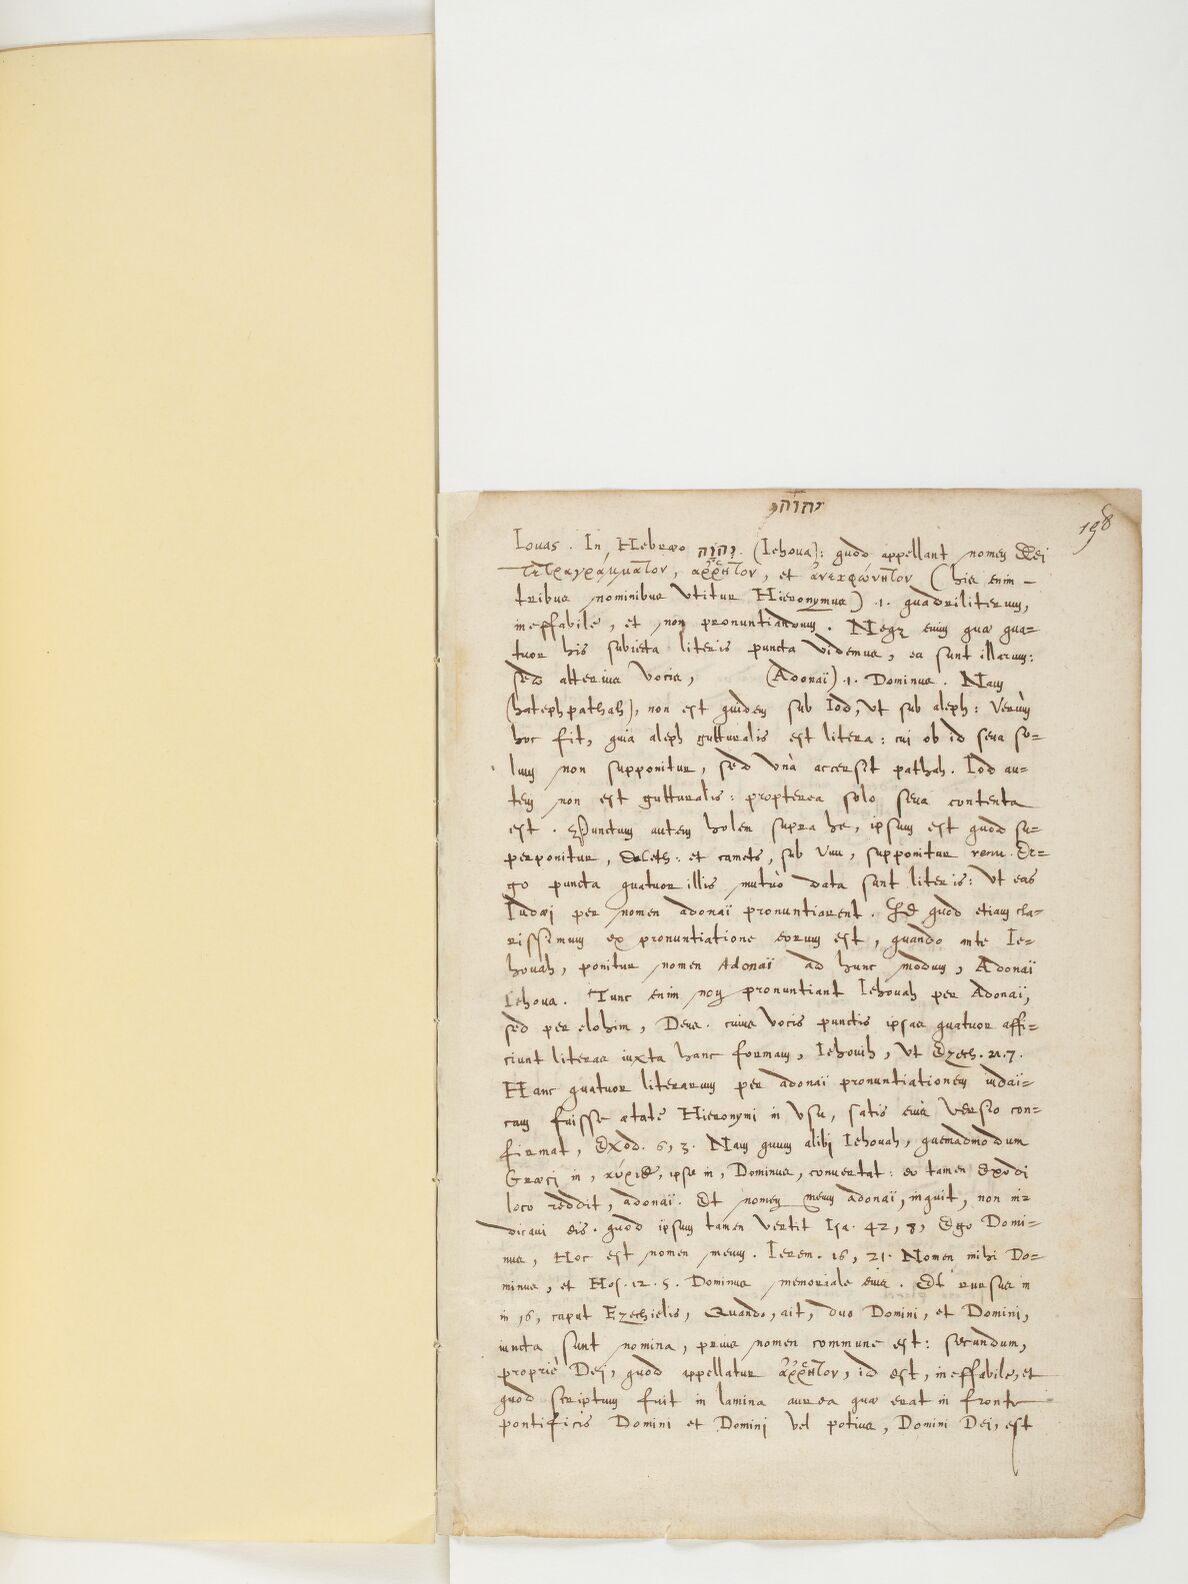 יהוה
198
Iovas. In Hebræo יהוה. (Iehoua): quod appellant nomen Dei
τετραγράμματον, ἄῤῥητον, et ἀνεκφώνητον (his enim
tribus nominibus vtitur Hieronymus) .1. quadriliterum,
ineffabile, et non pronuntiandum. Neqꝫ enim quæ qua=
tuor his subiecta literis puncta videmus, ea sunt illarum:
sed alterius vocis, (Adonaï) .1. Dominus. Nam
(hatephpathah), non est quidem sub Iod, vt sub aleph: Verùm
hoc fit, quia aleph gutturalis est litera: cui ob id seua so=
lum non supponitur, sed vnà accersit pathah. Iod au=
tem non est gutturalis: propterea solo seua contenta
est. Punctum autem holem supra he, ipsum est quod su=
perponitur, Daleth: et camets, sub Vau, supponitur Er=
go puncta quatuor illis mutuò data sunt literis: vt eas
Iudæi per nomen adonaï pronuntiarent. Id quod etiam cla=
rissimum ex pronuntiatione eorum est, quando ante Ie=
houah, ponitur nomen Adonaï ad hunc modum, Adonaï
Iehoua. Tunc enim non pronuntiant Iehouah per Adonaï,
sed per elohim, Deus. cuius vocis punctis ipsæ quatuor affi=
ciunt literas iuxta hanc formam, Iehouih, vt Ezech. 21.7.
Hanc quatuor literarum per adonaï pronuntiationem iudaï=
cam fuisse ætate Hieronymi in vsu, satis eius versio con=
firmat, Exod. 6, 3. Nam quum alibi Iehouah, quemadmodum
Græci in, κύριος, ipse in, Dominus, conuertat: eo tamen Exodi
loco reddit, adonaï. Et nomen meum adonaï, inquit, non in=
dicaui eis. quod ipsum tamen vertit Isa. 42, 8, Ego Domi=
nus, Hoc est nomen meum. Ierem. 16, 21. Nomen mihi Do=
minus, et Hos. 12. 5. Dominus memoriale eius. Et rursus in
in 16, caput Ezechielis, Quando, ait, duo Domini, et Domini,
iuncta sunt nomina, prius nomen commune est: secundum,
propriè Dei, quod appellatur ἄῤῥητον, id est, ineffabile, et
quod scriptum fuit in lamina aurea quæ erat in fronte
pontificis Domini et Domini vel potius, Domini Dei, est